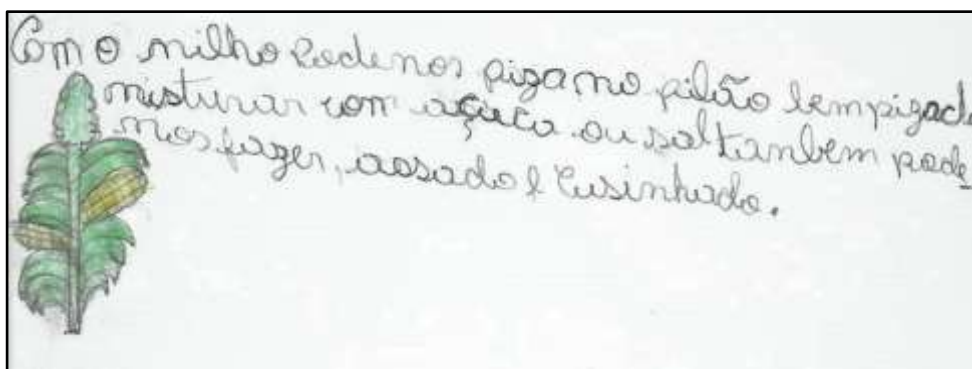 Com o milho Podemos piza no pilão bempizado
misturar com açuca ou sal tanbem pode_
mos fazer, assado e cusinhado.